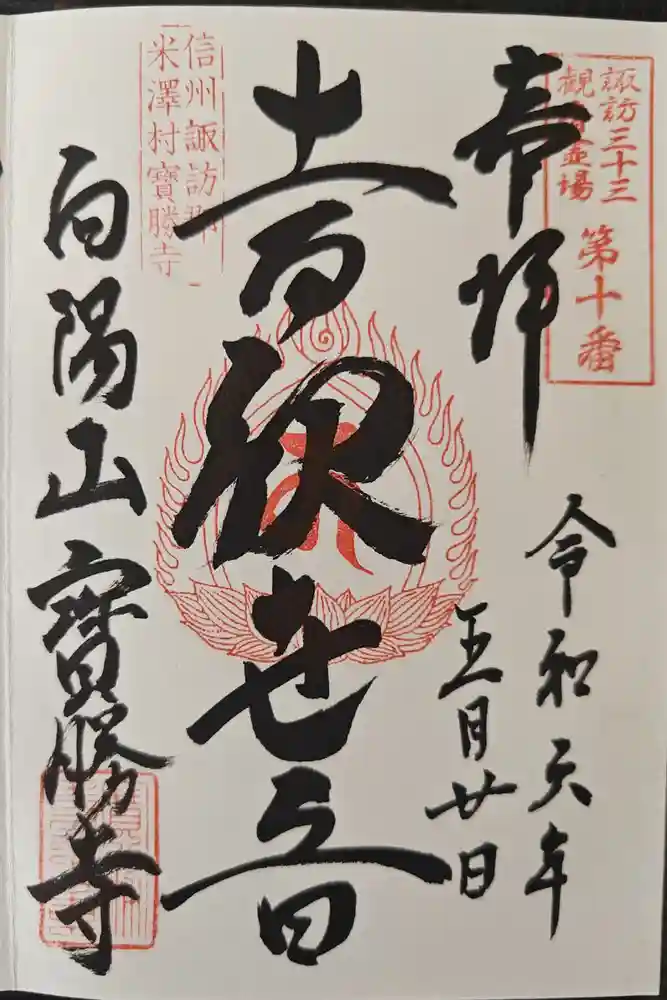 諏訪三十三
観音霊場
第十番
奉拝
令和元年
五月廿日
十一面観世音
信州諏訪郡
米澤村寶勝寺
向陽山寶勝寺